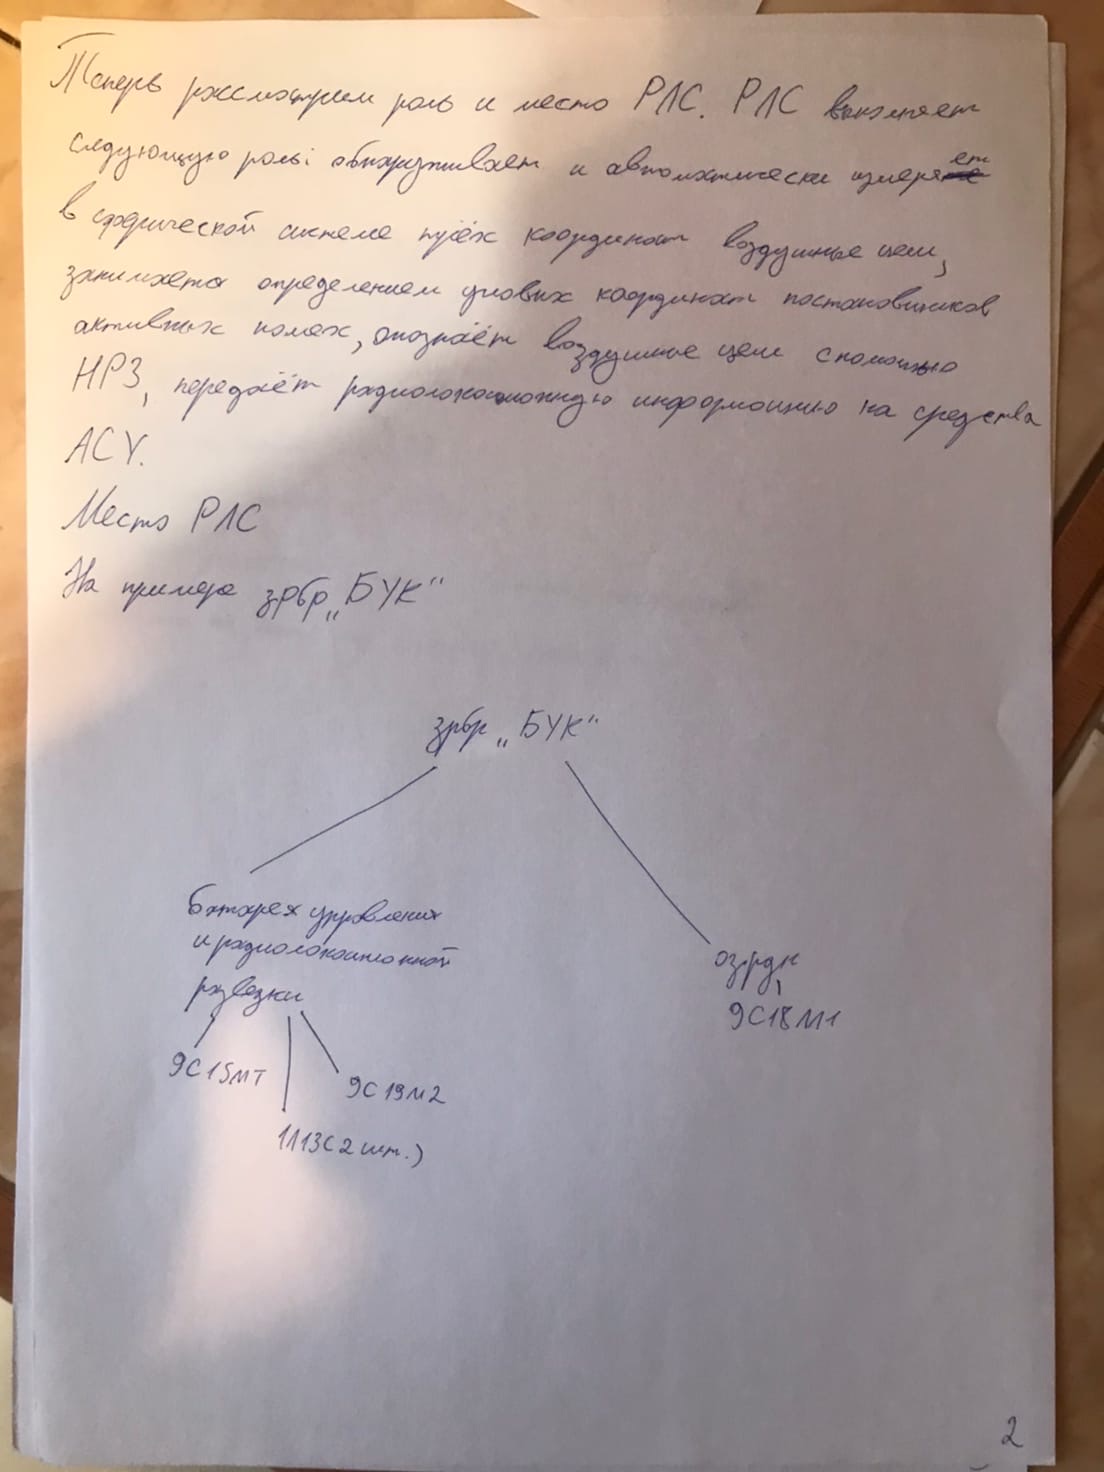 Теперь рассмотрим роль и место РЛС. РЛС выполняет
следующую роль: обнаруживает и автоматически измеряет
в сферической системе трёх координат воздушные цели,
занимается определением угловых координат постановщиков
активных помех, опознаёт воздушные цели с помощью
НРЗ, передаёт радиолокационную информацию на средства
АСУ.
Место РЛС
На примере зрбр „БУК"
зрбр „БУК"
батарея управления
и радиолокационной
разведки
озрдн
9С18М1
9С15МТ
9С19М2
1Л13(2 шт.)
2